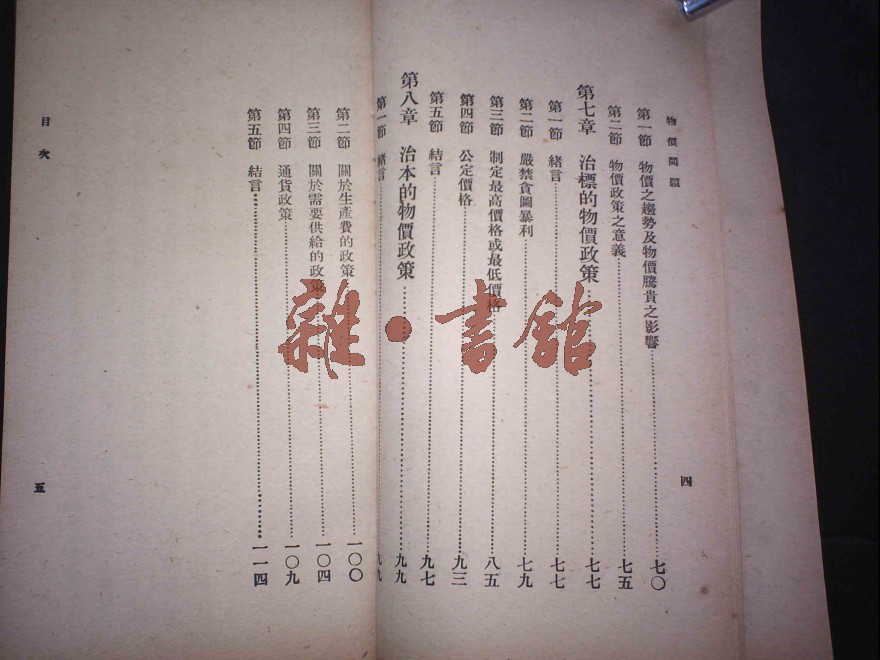 物價問題
第一節 物價之趨勢及物價騰貴之影響……七〇
第二節 物價政策之意義……七五
第七章 治標的物價政策……七七
第一節 緒言……七七
第二節 嚴禁貪圖暴利……七九
第三節 制定最高價格或最低價格……八五
第四節 公定價格……九三
第五節 結言……九七
第八章 治本的物價政策……九九
四
第一節 緒言……九九
第二節 關於生產費的政策……一〇〇
第三節 關於需要供給的政策……一〇四
第四節 通貨政策……一〇九
第五節 結言……一一四
目次
五
雜·書館